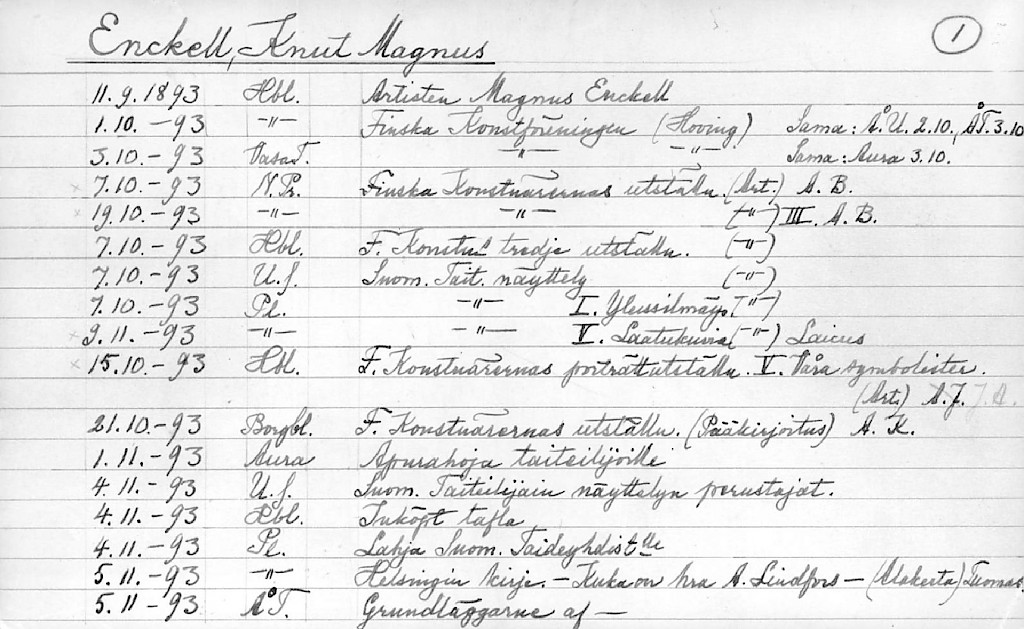 Enckell, Knut Magnus 1
11.9.1893 Hbl. Artisten Magnus Enckell
1.10.-93 -"- Finska Konstföreningen (Hoving) Sama: Å.U. 2.10., ÅT. 3.10
3.10.-93 VasaT. -"- -"- Sama: Aura 3.10.
x 7.10.-93 N.Pr. Finska Konstnärernas utställn. (Art.) A.B.
x 19.10.-93 -"- -"- (-"-) III. A.B.
7.10.-93 Hbl. F. Konstn:s tredje utställn. (-"-)
7.10.-93 U.S. Suom. Tait. näyttely (-"-)
7.10.-93 Pl. -"- I. Yleissilmäys (-"-)
x 9.11.-93 -"- -"- V. Laatukuvia (-"-) Laicus
x 15.10.-93 Hbl. F. Konstnärernas porträttutställn. V. Våra symbolister.
(Art.) A.J. J.A.
21.10.-93 Borgbl. F. Konstnärernas utställn. (Pääkirjoitus) A.K.
1.11.-93 Aura Apurahoja taiteilijoille
4.11.-93 U.S. Suom. Taiteilijain näyttelyn perustajat.
4.11.-93 Hbl. Inköpt tafla
4.11.-93 Pl. Lahja Suom. Taideyhdist:lle
5.11.-93 -"- Helsingin kirje. - Kuka on hra A. Lindfors - (Alakerta) Tuomas.
5.11-93 ÅT. Grundläggarne af -